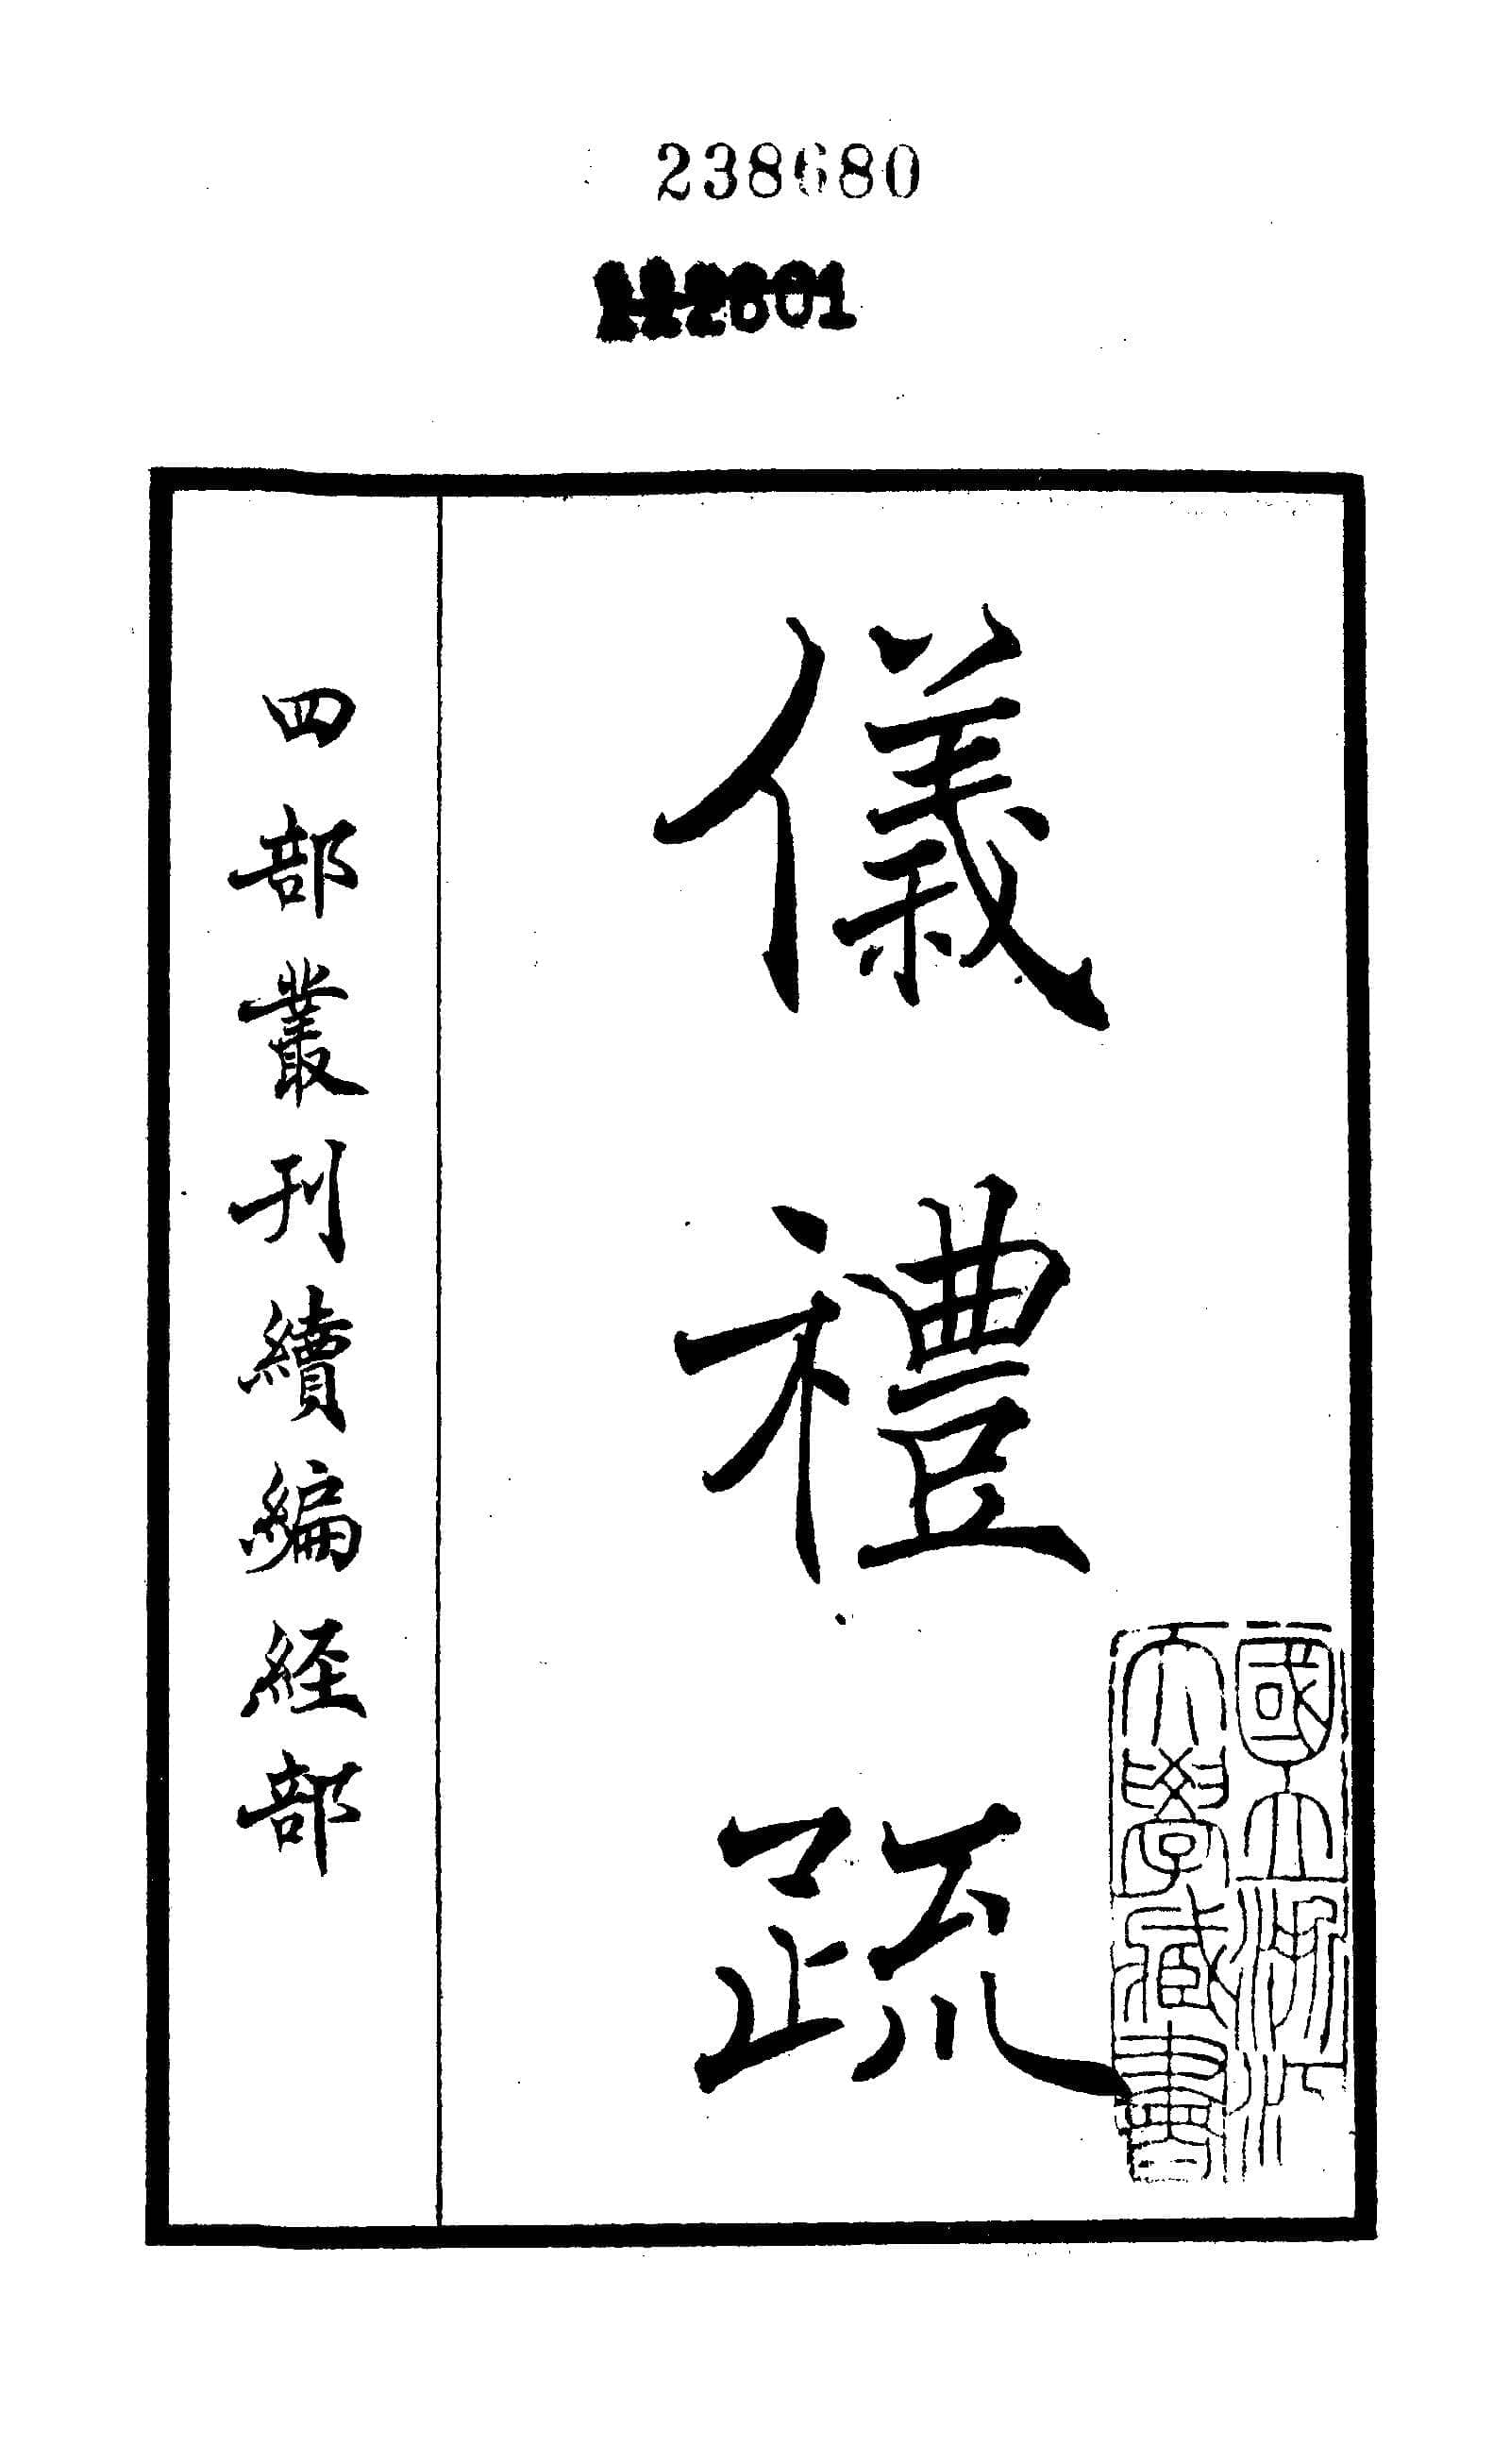 238680
儀禮疏
四部叢刊續編經部
國立浙江
大學藏書